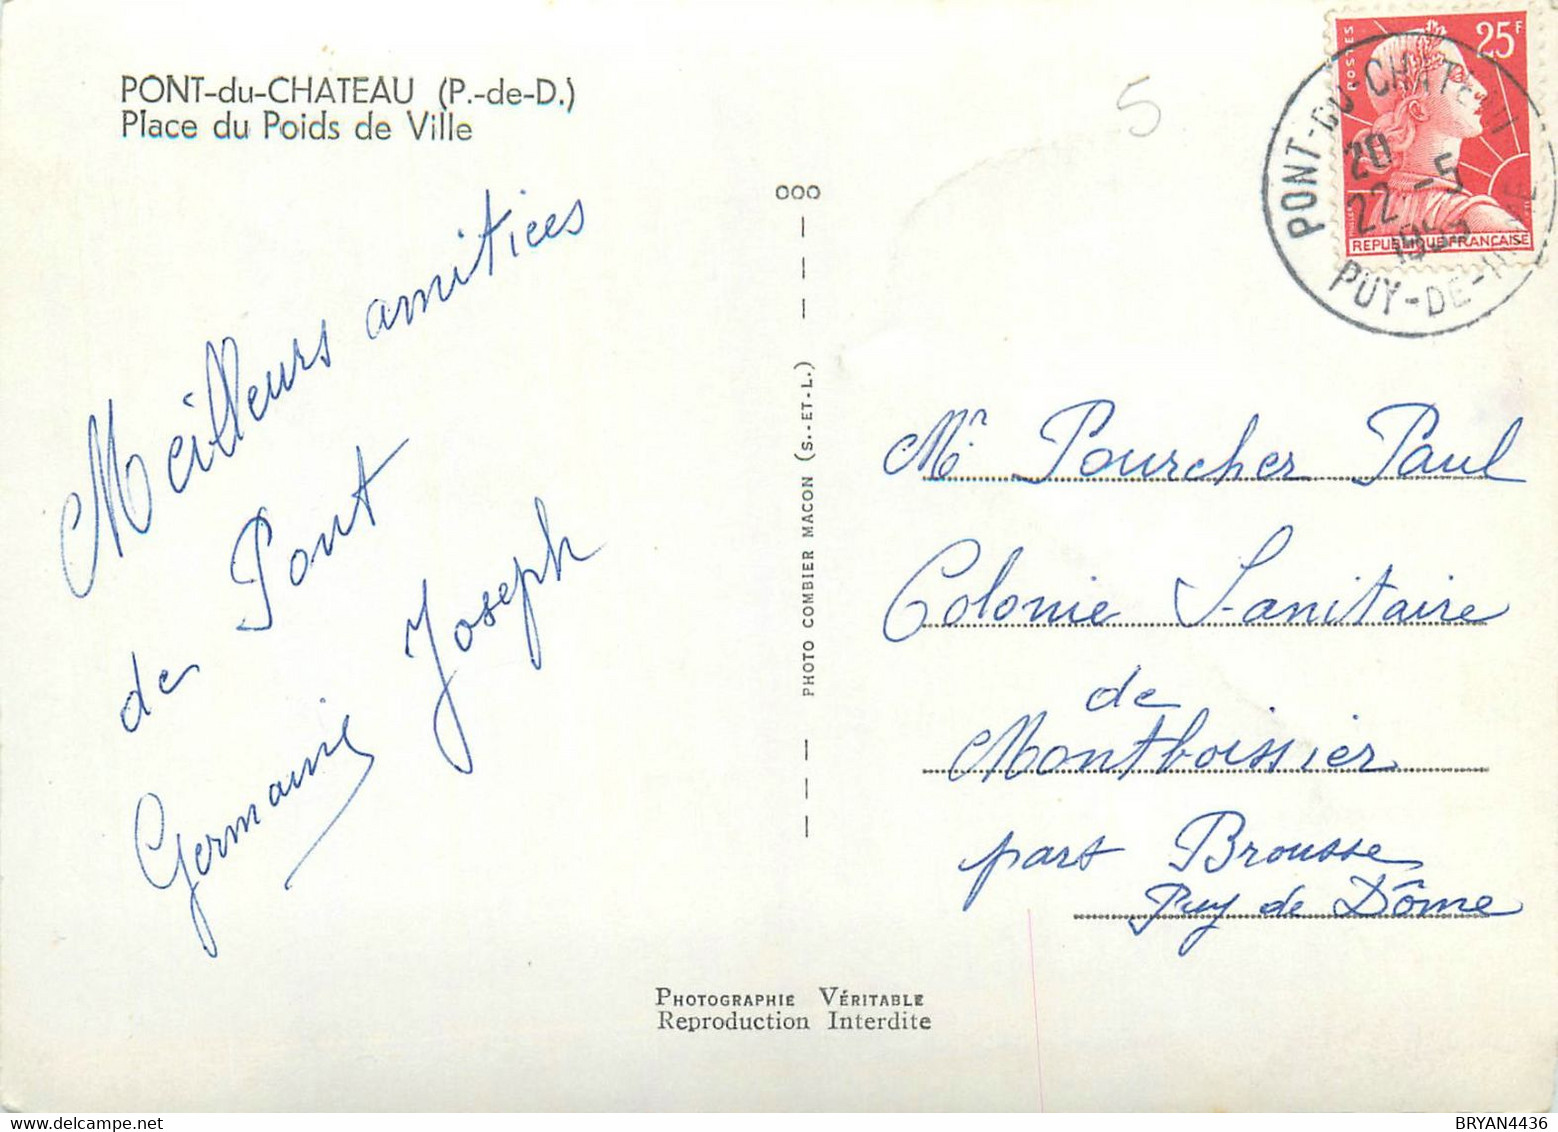 PONT-du-CHATEAU (P.-de-D.)
Place du Poids de Ville
Meilleurs amitiees
de Pont
Germaine Joseph
5
ooo
PHOTO COMBIER MACON (S.-ET-L.)
POSTES
25F
REPUBLIQUE FRANÇAISE
PONT-DU-CHATEAU
20
22 -5
PUY-DE-DÔME
Mr Pourcher Paul
Colonie Sanitaire
de
Montboissier
part Brousse
Puy de Dôme
PHOTOGRAPHIE VÉRITABLE
Reproduction Interdite
BRYAN4436